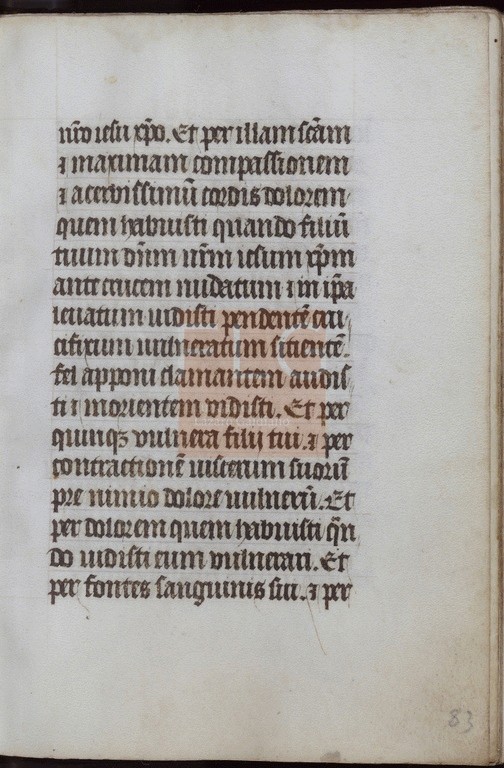 nr̄o iesu xp̄o. Et per illam scām
⁊ maximam compassionem
⁊ acerbissimū cordis dolorem
quem habuisti quando filiū
tuum dn̄m nr̄m iesum xp̄m
ante crucem nudatum ⁊ in ip̄a
leuatum uidisti pendentē cru
cifixum uulneratum sitientē
fel apponi clamantem audis
ti ⁊ morientem vidisti. Et per
quinqꝫ vulnera filij tui. ⁊ per
contractionē uiscerum suorū
pre nimio dolore uulnerū. Et
per dolorem quem habuisti qn̄
do uidisti eum vulnerari. Et
per fontes sanguinis sui. ⁊ per
83